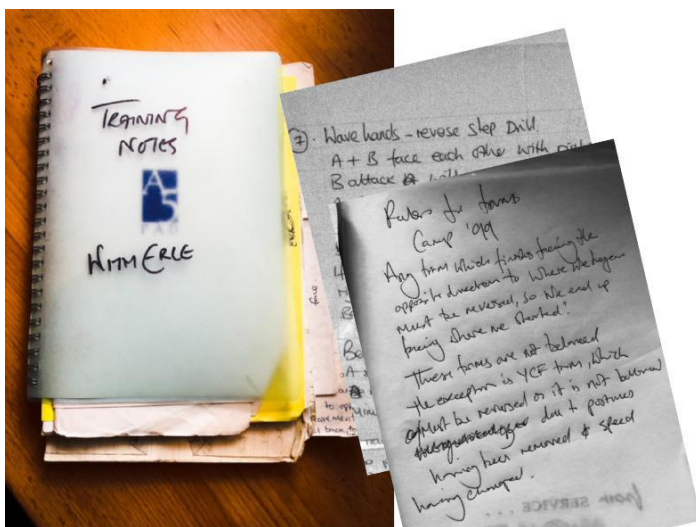 TRAINING
NOTES
A5
PAD
WITH ERLE
7. Wave hands - reverse step Drill.
A + B face each other with
B attack
Rules for forms
Camp '99
Any form which finishes facing the
opposite direction to where we began
must be reversed, so we end up
facing where we started.
These forms are not balanced
the exception is YCF form, which
must be reversed as it is not
due to postures
having been removed & speed
having changed.
SERVICE...